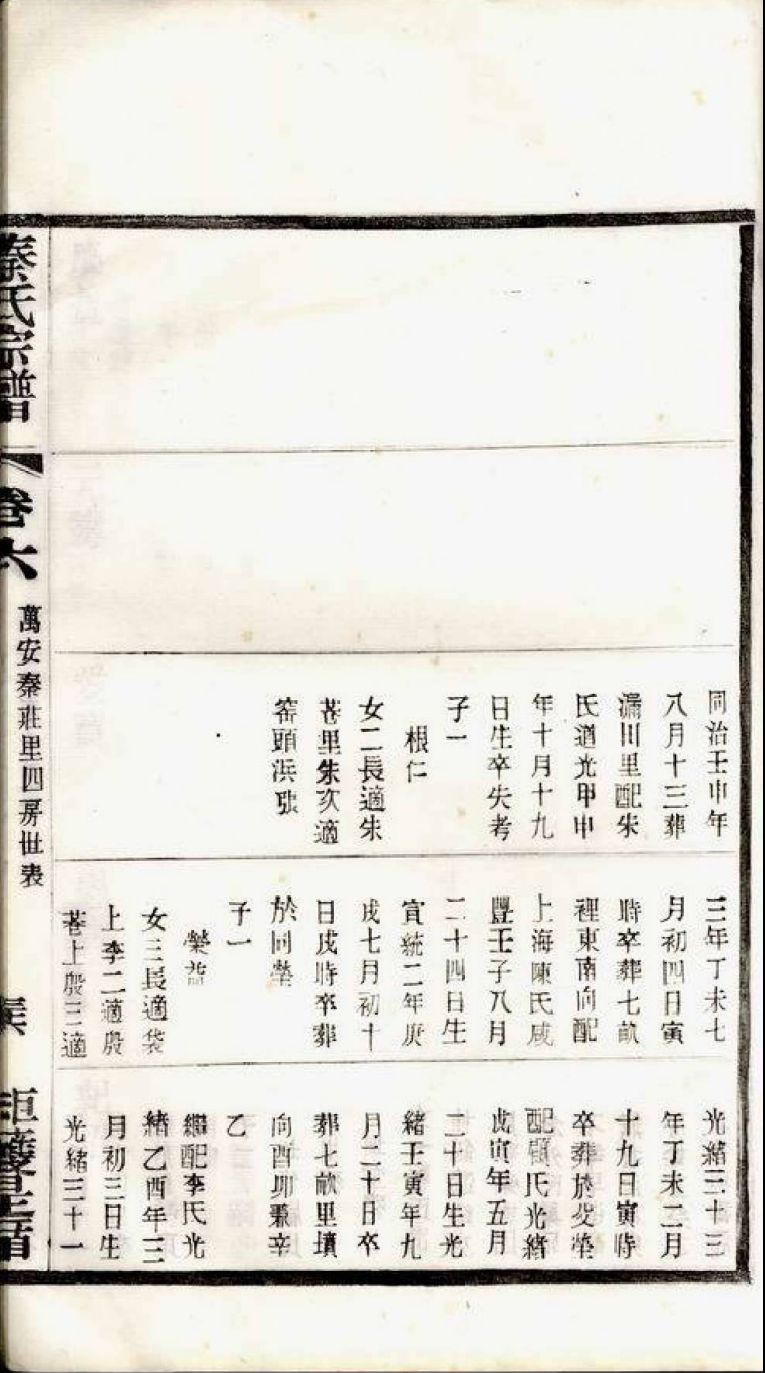 同治壬申年
八月十三葬
漏川里配朱
氏道光甲申
年十月十九
日生卒失考
子一
根仁
女二長適朱
巷里朱次適
窑頭浜張
三年丁未七
月初四日寅
時卒葬七畝
裡東南向配
上海陳氏咸
豐壬子八月
二十四日生
宣統二年庚
戌七月初十
日戌時卒葬
於同塋
子一
榮
女三長適袋
上李二適殷
巷上殷三適
光緒三十三
年丁未二月
十九日寅時
卒葬於父塋
配顧氏光緒
戊寅年五月
二十日生光
緒壬寅年九
月二十日卒
葬七畝里墳
向酉卯兼辛
乙
繼配李氏光
緒乙酉年三
月初三日生
光緒三十一
秦氏宗譜
卷六
萬安秦莊里四房世表